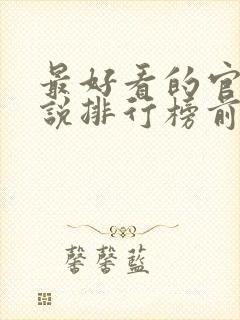 最好看的官
說排行榜前
馨馨藍